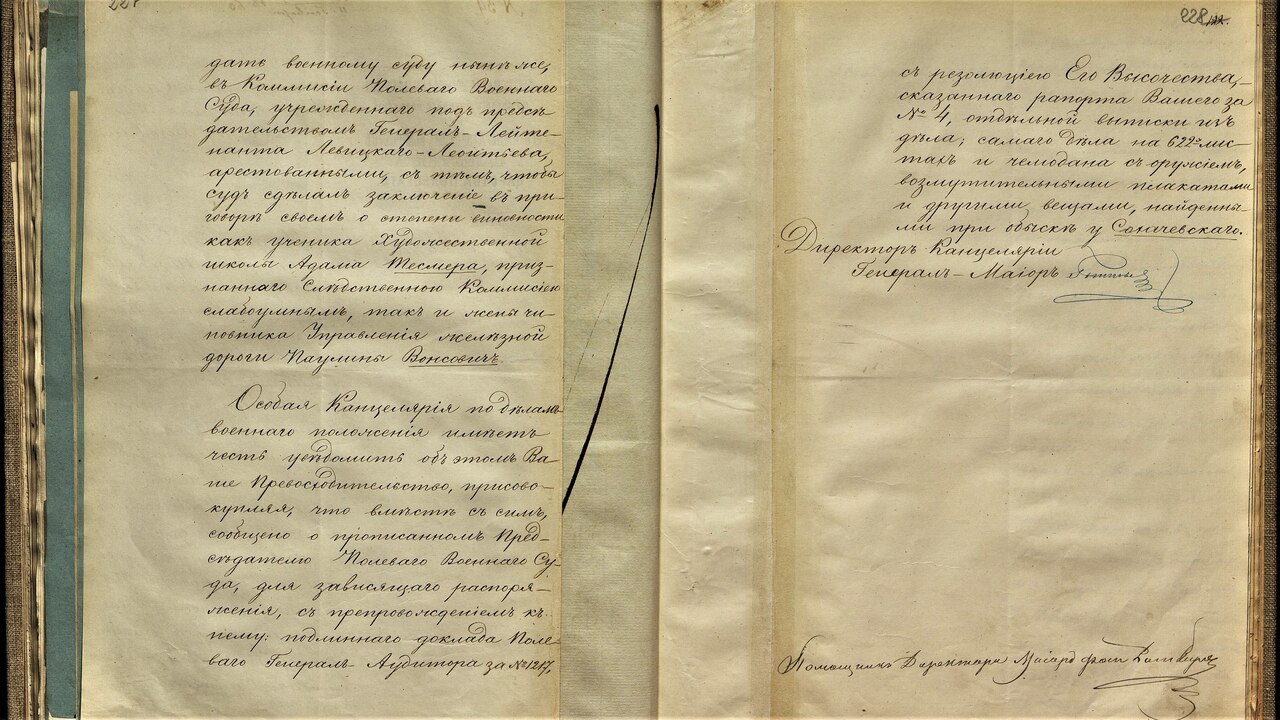 227
дать военному суду нынѣже,
въ Коммисіи Полеваго Военнаго
Суда, учрежденнаго подъ предсѣ
дательствомъ Генералъ-Лейте-
нанта Левицкаго-Леонтьева,
арестованными, съ тѣмъ, чтобы
судъ сдѣлалъ заключеніе въ при-
говорѣ своемъ о степени виновности
какъ ученика Художественной
школы Адама Тесмера, приз-
наннаго Слѣдственною Коммисіею
слабоумнымъ, такъ и жены чи-
новника Управленія желѣзной
дороги Паулины Вонсовичъ.
Особая Канцелярія по дѣламъ
военнаго положенія имѣетъ
честь увѣдомить объ этомъ Ва
ше Превосходительство, присово-
купляя, что вмѣстѣ съ симъ,
сообщено о прописанномъ Пред-
сѣдателю Полеваго Военнаго Су-
да, для зависящаго распоря-
женія, съ препровожденіемъ къ
нему: подлиннаго доклада Поле-
ваго Генералъ-Аудитора за № 1217,
228
съ резолюціею Его Высочества,-
сказаннаго рапорта Вашего за
№ 4, отдѣльной выписки изъ
дѣла; самаго дѣла на 622 лис
тахъ и чемодана съ оружіемъ,
возмутительными плакатами
и другими вещами, найденны-
ми при обыскѣ у Соначевскаго.
Директоръ Канцеляріи
Генералъ-Маіоръ
Помощникъ Директора Маіоръ фон